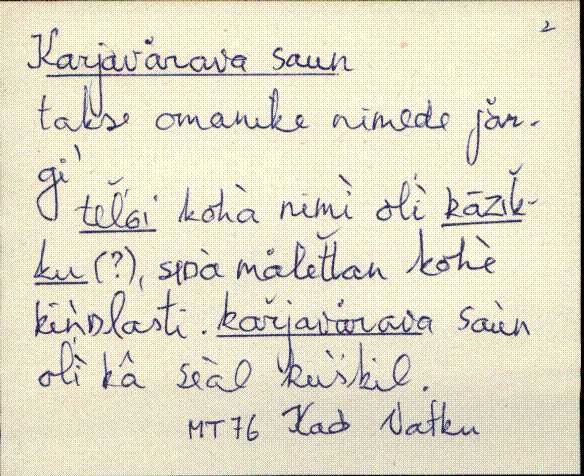 2
Karjavärava saun
takse omanike nimede jär-
gi
tel̆gi kohà nimì olì kāzik̆-
ku (?), sᴉᴅà mäletan kohè
kiǹᴅlasti. kar̆javärava saùn
olì kâ seàl kùskil.
MT 76 Kad Vatku